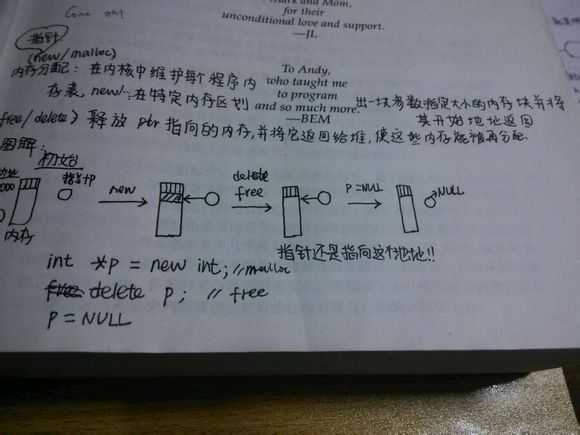 Mark and Mom,
for their
unconditional love and support.
—JL
指针
(new/malloc)
To Andy,
内存分配：在内核中维护每个程序内
who taught me
to program
存表，new/~在特定内存区划
and so much more.
出一块参数指定大小的内存块并将
其开始地址返回
—BEM
free/delete) 释放 ptr 指向的内存，并将它返回给堆，使这些内存能被再分配.
图解：
初始
指针P
new
delete
free
P=NULL
NULL
内存
指针还是指向这个地址!!
int *p = new int; //malloc
delete p; // free
P = NULL